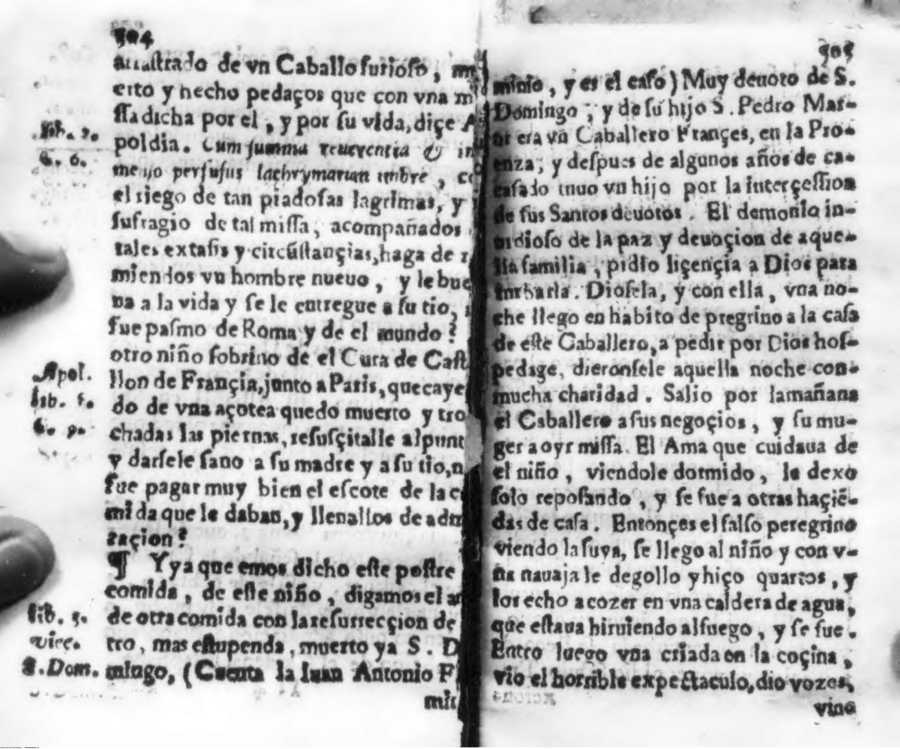 304
arrastrado de vn Caballo furioso,
erto y hecho pedaços que con vna
ssa dicha por el, y por su vida, diçe
poldia. Cum summa reuerentia &
lib. 2.
c. 6.
perfusus lachrymarum imbre,
el riego de tan piadosas lagrimas, y
sufragio de tal missa, acompañados
tales extasis y circũstançias, haga de
miendos vn hombre nueuo, y le bue
ua a la vida y se le entregue a su tio,
fue pasmo de Roma y de el mundo?
otro niño sobrino de el Cura de Cast
Apol.
lib. 5.
c. 9.
llon de Françia, junto a Paris, que caye
do de vna açotea quedo muerto y tro
chadas las piernas, resusçitalle al punt
y darsele sano a su madre y a su tio,
fue pagar muy bien el escote de la
mida que le daban, y llenallos de adm
raçion?
¶ Y ya que emos dicho este postre
comida, de este niño, digamos el
lib. 5.
vitę.
S. Dom.
de otra comida con la resurrecçion de
tro, mas estupenda, muerto ya S. D
mingo, (Cuenta la Iuan Antonio F
305
minio, y es el caso) Muy deuoto de S.
Domingo, y de su hijo S. Pedro Mar-
era vn Caballero Françes, en la Pro-
enza, y despues de algunos años de ca-
sado tuuo vn hijo por la interçession
de sus Santos deuotos. El demonio in-
uidioso de la paz y deuoçion de aque-
lla familia, pidio liçençia a Dios para
turbarla. Diosela, y con ella, vna no-
che llego en habito de pegrino a la casa
de este Caballero, a pedir por Dios hos-
pedage, dieronsele aquella noche con
mucha charidad. Salio por la mañana
el Caballero a sus negoçios, y su mu-
ger a oyr missa. El Ama que cuidaua de
el niño, viendole dormido, le dexo
solo reposando, y se fue a otras haçiẽ-
das de casa. Entonçes el falso peregrino
viendo la suya, se llego al niño y con v-
na nauaja le degollo y hiço quartos, y
los echo a cozer en vna caldera de agua,
que estaua hiruiendo al fuego, y se fue.
Entro luego vna criada en la coçina,
vio el horrible expectaculo, dio vozes,
vino